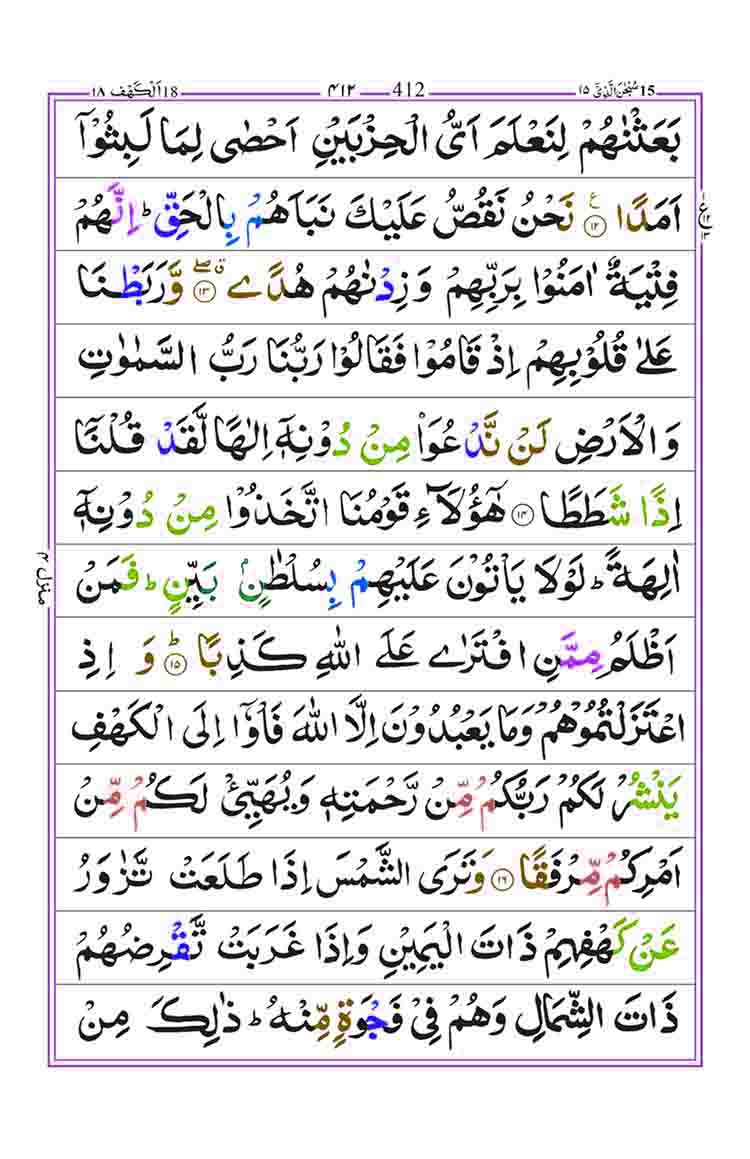 15 سُبْحٰنَ الَّذِیْۤ ١٥ 412 ۴۱۲ 18 اَلْكَهْف ١٨
بَعَثْنٰهُمْ لِنَعْلَمَ اَیُّ الْحِزْبَیْنِ اَحْصٰی لِمَا لَبِثُوْۤا
اَمَدًا ۧ﴿۱۲﴾ نَحْنُ نَقُصُّ عَلَیْكَ نَبَاَهُمْ بِالْحَقِّ ؕ اِنَّهُمْ
فِتْیَةٌ اٰمَنُوْا بِرَبِّهِمْ وَ زِدْنٰهُمْ هُدًے ﴿۱۳﴾ۗۖ وَّ رَبَطْنَا
عَلٰی قُلُوْبِهِمْ اِذْ قَامُوْا فَقَالُوْا رَبُّنَا رَبُّ السَّمٰوٰتِ
وَ الْاَرْضِ لَنْ نَّدْعُوَا۠ مِنْ دُوْنِهٖۤ اِلٰهًا لَّقَدْ قُلْنَاۤ
اِذًا شَطَطًا ﴿۱۴﴾ هٰۤؤُلَآءِ قَوْمُنَا اتَّخَذُوْا مِنْ دُوْنِهٖۤ
اٰلِهَةً ؕ لَوْ لَا یَاْتُوْنَ عَلَیْهِمْ بِسُلْطٰنٍۭ بَیِّنٍ ؕ فَمَنْ
اَظْلَمُ مِمَّنِ افْتَرٰے عَلَی اللّٰهِ كَذِبًا ﴿۱۵﴾ؕ وَ اِذِ
اعْتَزَلْتُمُوْهُمْ وَمَا یَعْبُدُوْنَ اِلَّا اللّٰهَ فَاْوٗۤا اِلَی الْكَهْفِ
یَنْشُرْ لَكُمْ رَبُّكُمْ مِّنْ رَّحْمَتِهٖ وَ یُهَیِّئْ لَكُمْ مِّنْ
اَمْرِكُمْ مِّرْفَقًا ﴿۱۶﴾ وَ تَرَی الشَّمْسَ اِذَا طَلَعَتْ تَّزٰوَرُ
عَنْ كَهْفِهِمْ ذَاتَ الْیَمِیْنِ وَ اِذَا غَرَبَتْ تَّقْرِضُهُمْ
ذَاتَ الشِّمَالِ وَ هُمْ فِیْ فَجْوَةٍ مِّنْهُ ؕ ذٰلِكَ مِنْ
منزل ۴